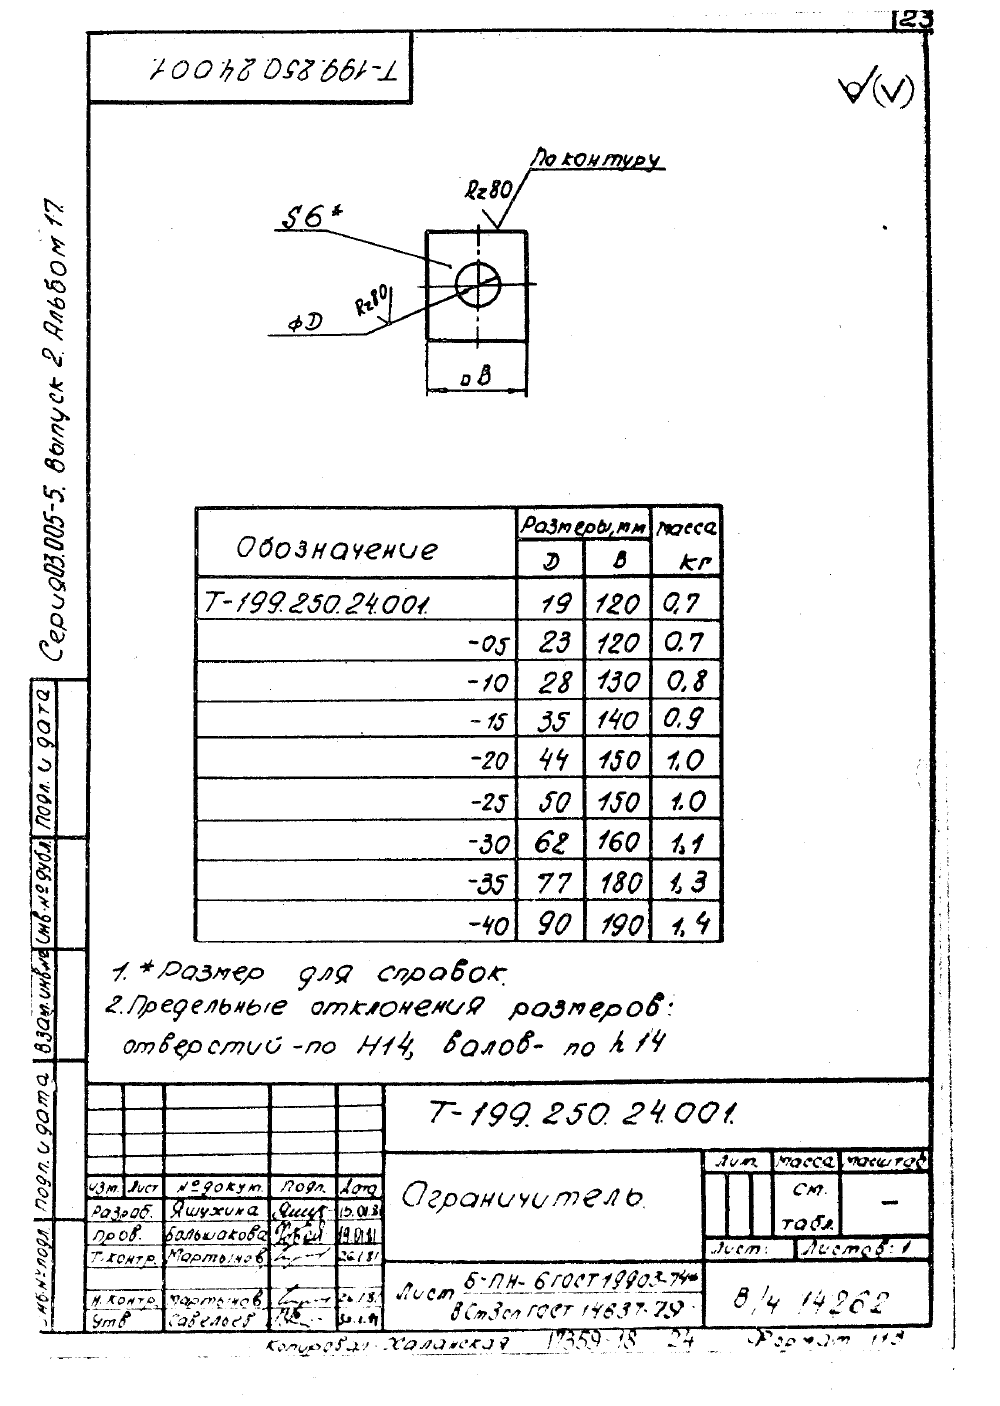 23
Т-199.250.24.001.
√(√)
Серия 03.005-5. Выпуск 2. Альбом 17.
По контуру
Rz80
S6*
Rz80
⌀D
□B
Обозначение Размеры, мм масса
D B кг
Т-199.250.24.001. 19 120 0,7
-05 23 120 0.7
-10 28 130 0,8
-15 35 140 0.9
-20 44 150 1.0
-25 50 150 1.0
-30 62 160 1,1
-35 77 180 1,3
-40 90 190 1,4
1. *Размер для справок.
2. Предельные отклонения размеров:
отверстий - по H14, валов - по h14
Подп. и дата
Инв. № дубл.
Взам. инв. №
Подп. и дата
Инв. № подл.
Т-199.250.24.001.
Изм. Лист № докум. Подп. Дата
Разраб. Яшухина 15.01.81
Пров. Большакова 19.01.81
Т. контр. Мартынов 26.1.81
Н. контр. Мартынов 26.1.81
Утв Савельев
Ограничитель.
Лит. Масса Масштаб
См. табл. –
Лист: Листов: 1
Лист Б-ПН-6 ГОСТ 19903-74*
ВСт3сп ГОСТ 14637-79
В/ч 14262
Копировал Халанская 17359-18 24 Формат 11з